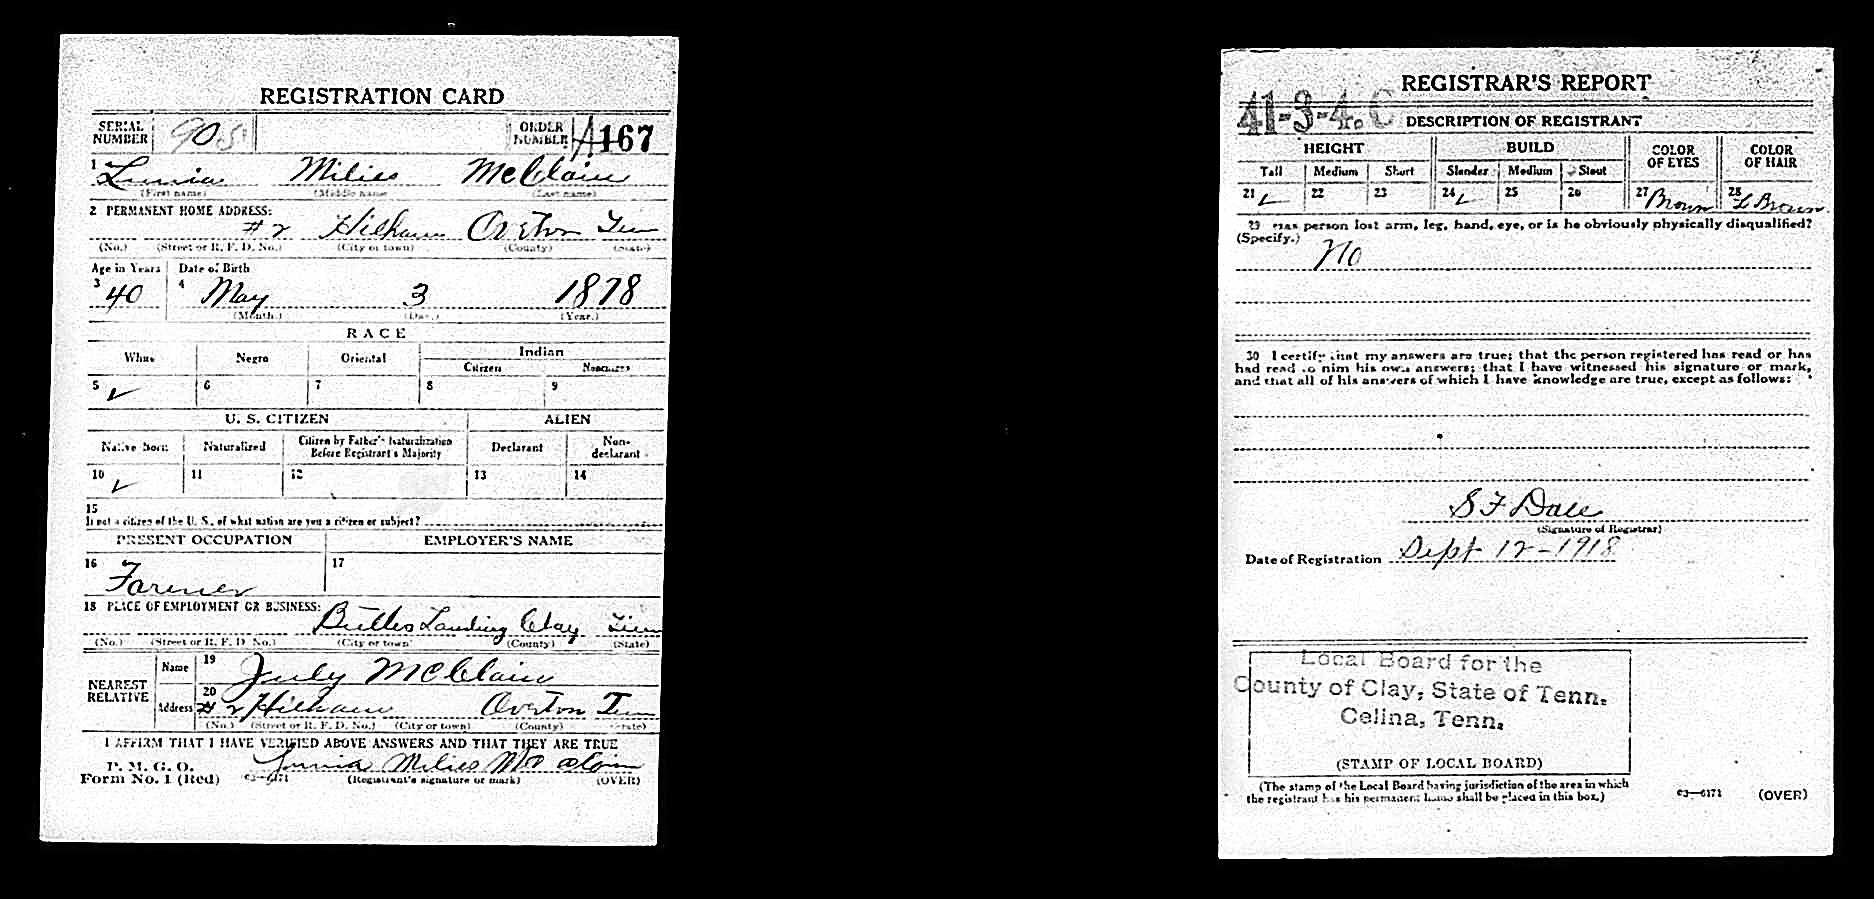 REGISTRATION CARD
SERIAL NUMBER 905 ORDER NUMBER A167
1 Lunia Milies McClain
(First name) (Middle name) (Last name)
2 PERMANENT HOME ADDRESS:
#2 Hilham Overton Tenn
(No.) (Street or R. F. D. No.) (City or town) (County) (State)
Age in Years Date of Birth
3 40 4 May 3 1878
(Month.) (Day.) (Year.)
RACE
White Negro Oriental Indian
Citizen Noncitizen
5 ✓ 6 7 8 9
U. S. CITIZEN ALIEN
Native Born Naturalized Citizen by Father's Naturalization Before Registrant's Majority Declarant Non-declarant
10 ✓ 11 12 13 14
15
If not a citizen of the U. S., of what nation are you a citizen or subject?
PRESENT OCCUPATION EMPLOYER'S NAME
16 Farmer 17
18 PLACE OF EMPLOYMENT OR BUSINESS:
Butlers Landing Clay Tenn
(No.) (Street or R. F. D. No.) (City or town) (County) (State)
NEAREST RELATIVE Name 19 July McClain
Address 20 #2 Hilham Overton Tenn
(No.) (Street or R. F. D. No.) (City or town) (County) (State)
I AFFIRM THAT I HAVE VERIFIED ABOVE ANSWERS AND THAT THEY ARE TRUE
P. M. G. O.
Form No. 1 (Red) 03—6171 Lunia Milies McClain
(Registrant's signature or mark) (OVER)
REGISTRAR'S REPORT
41-3-4. C
DESCRIPTION OF REGISTRANT
HEIGHT BUILD COLOR OF EYES COLOR OF HAIR
Tall Medium Short Slender Medium Stout
21 ✓ 22 23 24 ✓ 25 26 27 Brown 28 L Brown
29 Has person lost arm, leg, hand, eye, or is he obviously physically disqualified?
(Specify.) No
30 I certify that my answers are true; that the person registered has read or has
had read to him his own answers; that I have witnessed his signature or mark,
and that all of his answers of which I have knowledge are true, except as follows:
S F Dale
(Signature of Registrar)
Date of Registration Sept 12-1918
Local Board for the
County of Clay, State of Tenn.
Celina, Tenn.
(STAMP OF LOCAL BOARD)
(The stamp of the Local Board having jurisdiction of the area in which
the registrant has his permanent home shall be placed in this box.)
03—6171 (OVER)